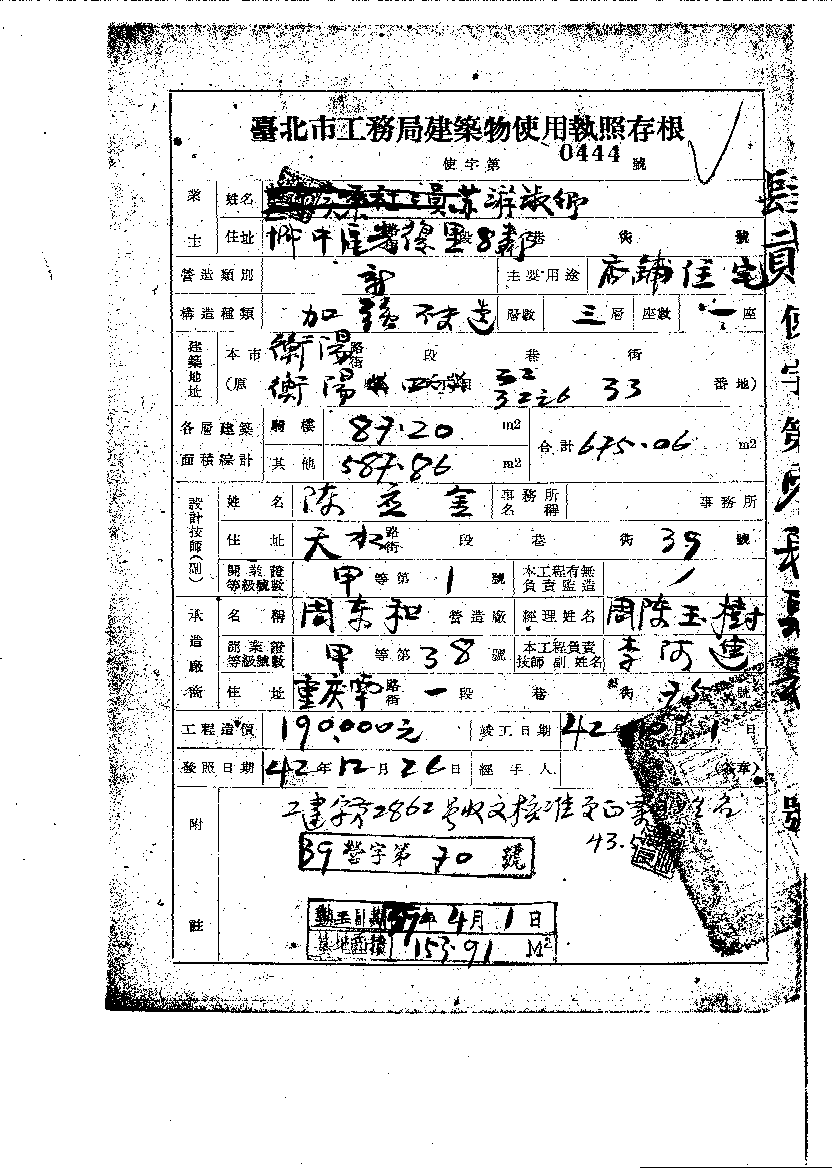 臺北市工務局建築物使用執照存根
使字第 0444 號
業主 姓名 蘇游淑卿
住址 城中區 段 里8鄰 巷 街 號
營造類別 新 主要用途 店鋪住宅
構造種類 加強 造 層數 三層 座數 一座
建築地址 本市 衡陽 路街 段 巷 街
(原 衡陽 四 32 32之6 33 番地)
各層建築面積總計 騎樓 87.20 m2 合計 675.06 m2
其他 587.86 m2
設計技師(副) 姓名 陳 金 事務所名稱 事務所
住址 天水 路街 段 巷 街 39 號
開業證等級號數 甲等第 1 號 本工程有無負責監造
承造廠商 名稱 周東和 營造廠 經理姓名 周陳玉樹
開業證等級號數 甲等第 38 號 本工程負責技師副姓名 李阿進
住址 重慶南 路街 一段 巷 街 號
工程造價 190,000元 竣工日期 42年10月1日
發照日期 42年12月26日 經手人 (簽章)
附註 工建字第2862號收文核准更正業主姓名
43.5
39營字第70號
動工日期 39年4月1日
基地面積 153.91 M²
使字第
號